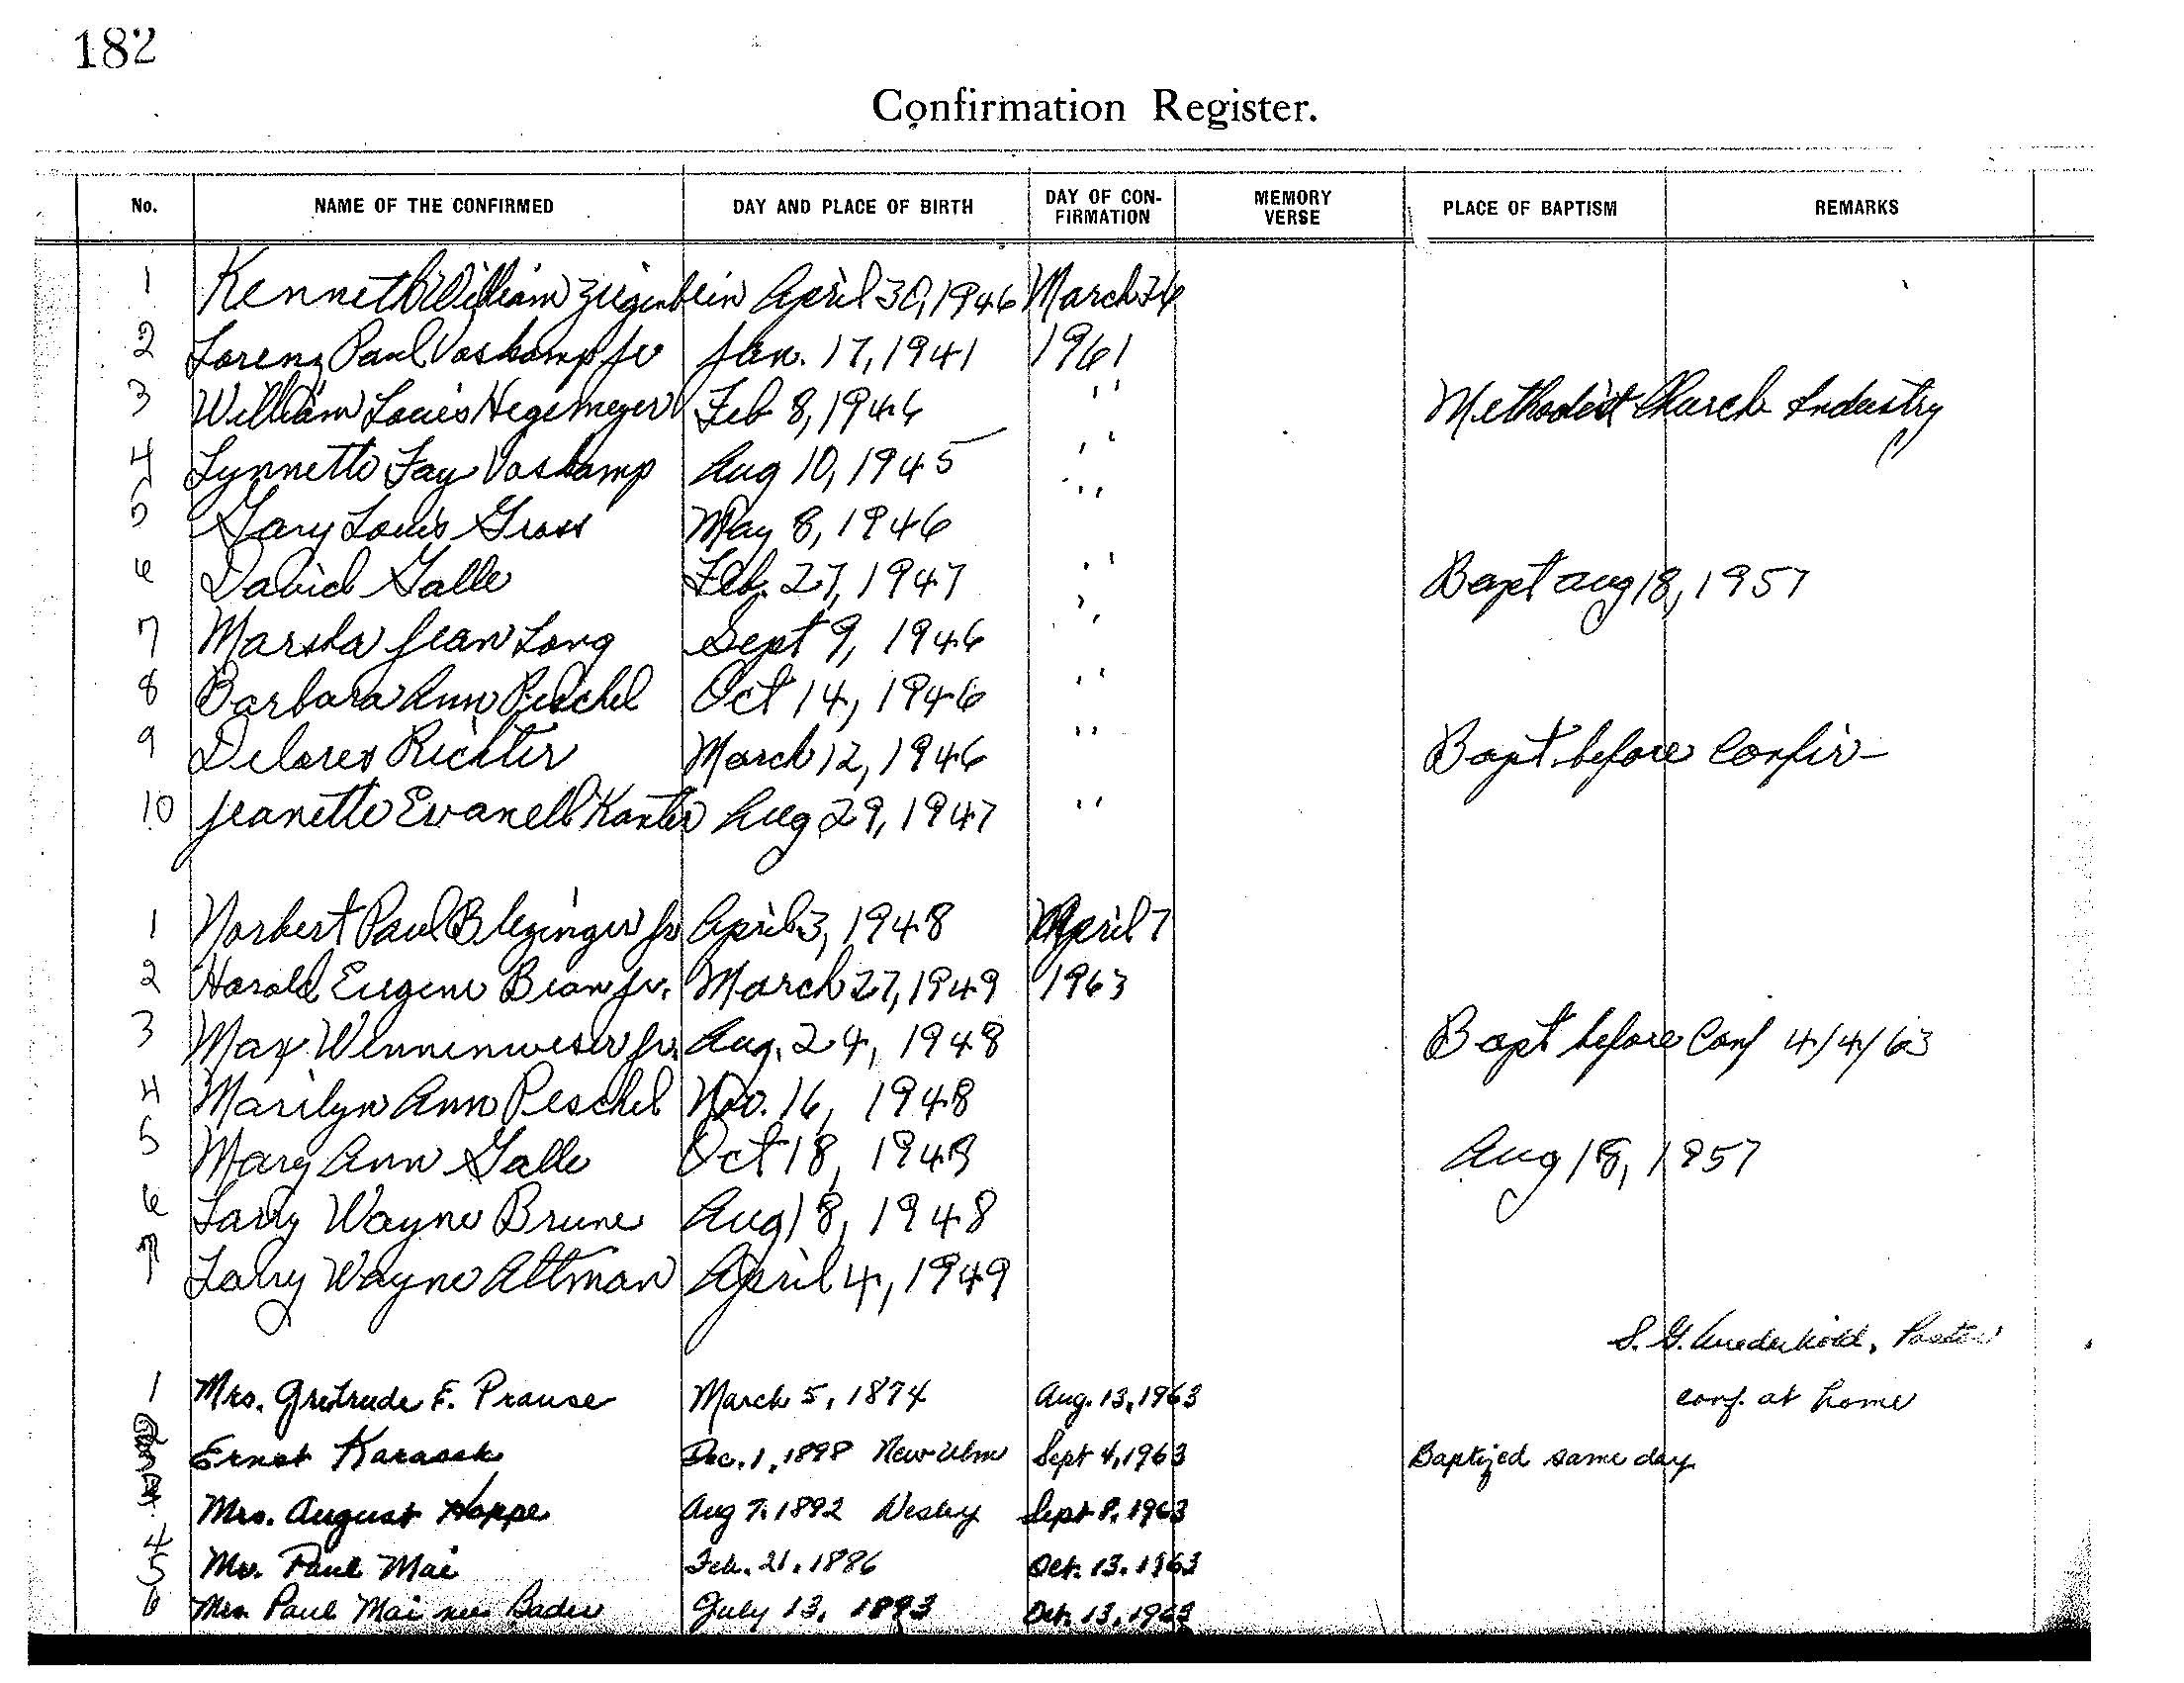 182
Confirmation Register.
No. NAME OF THE CONFIRMED DAY AND PLACE OF BIRTH DAY OF CON-FIRMATION MEMORY VERSE PLACE OF BAPTISM REMARKS
1 Kenneth William Ziegenbein April 30, 1946 March 26
2 Lorenz Paul Voskamp Jr Jan. 17, 1941 1961
3 William Louis Hegemeyer Feb 8, 1946 " Methodist Church Industry
4 Lynnette Fay Voskamp Aug 10, 1945 "
5 Gary Louis Gross May 8, 1946 "
6 David Galle Feb. 27, 1947 " Bapt Aug 18, 1957
7 Marsha Jean Long Sept 9, 1946 "
8 Barbara Ann Peschel Oct 14, 1946 "
9 Delores Richter March 12, 1946 " Bapt. before Confir-
10 Jeanette Evanell Kanter Aug 29, 1947 "
1 Norbert Paul Blezinger Jr April 3, 1948 April 7
2 Harold Eugene Bean Jr. March 27, 1949 1963
3 Max Winnenweser Jr. Aug. 24, 1948 Bapt before Conf 4/4/63
4 Marilyn Ann Peschel Nov. 16, 1948
5 Mary Ann Galle Oct 18, 1948 Aug 18, 1957
6 Larry Wayne Brune Aug 18, 1948
7 Larry Wayne Altman April 4, 1949
S. G. Pastor
1 Mrs. Gretrude F. Prause March 5, 1874 Aug. 13, 1963 conf. at home
Ernst Karasek Dec. 1, 1898 New Ulm Sept 4, 1963 Baptized same day
Mrs. August Hoppe Aug 7, 1892 Wesley Sept 8, 1963
4
5 Mr. Paul Mai Feb. 21, 1886 Oct. 13, 1963
6 Mrs. Paul Mai nee Bader July 13, 1893 Oct. 13, 1963